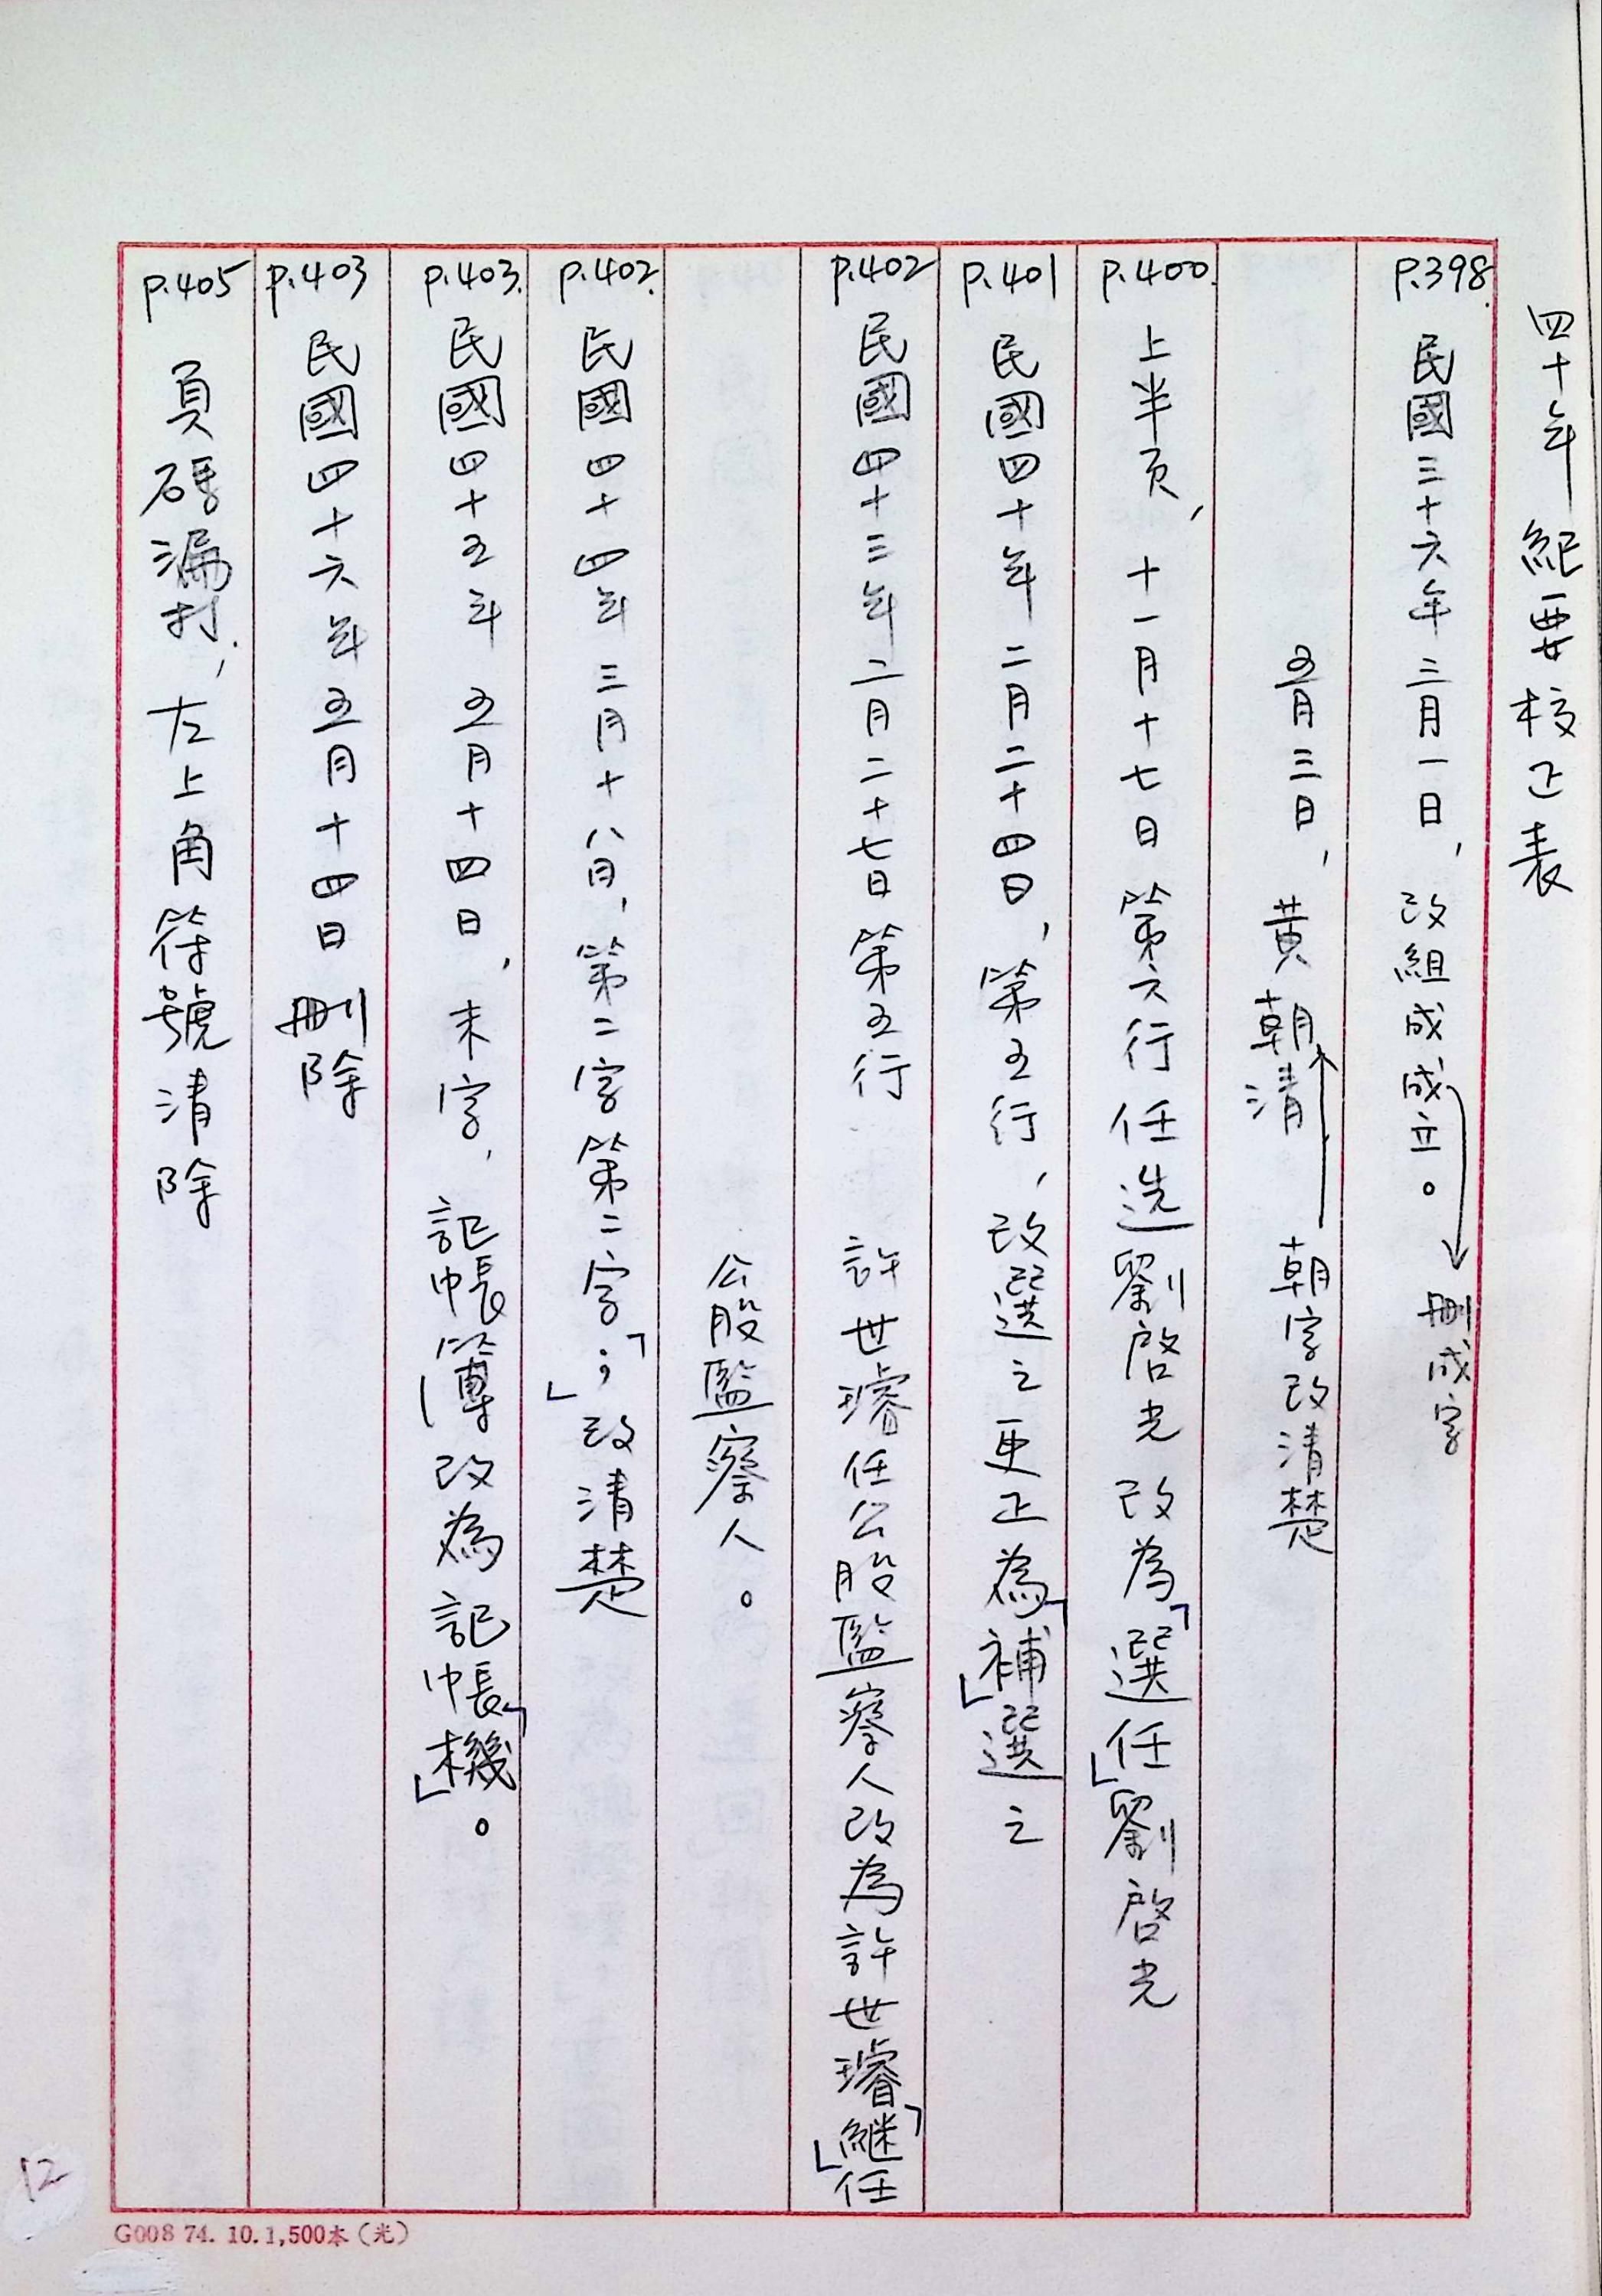 四十年紀要校正表
P.398. 民國三十六年三月一日，改組成成立。 刪成字
五月三日，黃朝清 朝字改清楚
P.400. 上半页，十一月十七日第六行任选劉啓光改為「選任」劉啓光
P.401 民國四十年二月二十四日，第五行，改選之更正為「補」選之
P.402 民國四十三年二月二十七日第五行 許世璿任公股監察人改為許世璿「継」任
公股監察人。
P.402. 民國四十四年三月十八日，第二字第二字「；」改清楚
P.403. 民國四十五年五月十四日，末字，記帳簿改為記帳「機」。
P.403 民國四十六年五月十四日刪除
P.405 頁碼漏打，左上角符號清除
12
G008 74. 10. 1,500本（光）